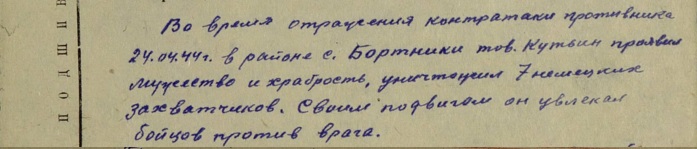 Во время отражения контратаки противника
24.04.44г. в районе с. Бортники тов. Кутьин проявил
мужество и храбрость, уничтожил 7 немецких
захватчиков. Своим подвигом он увлекал
бойцов против врага.
подшив